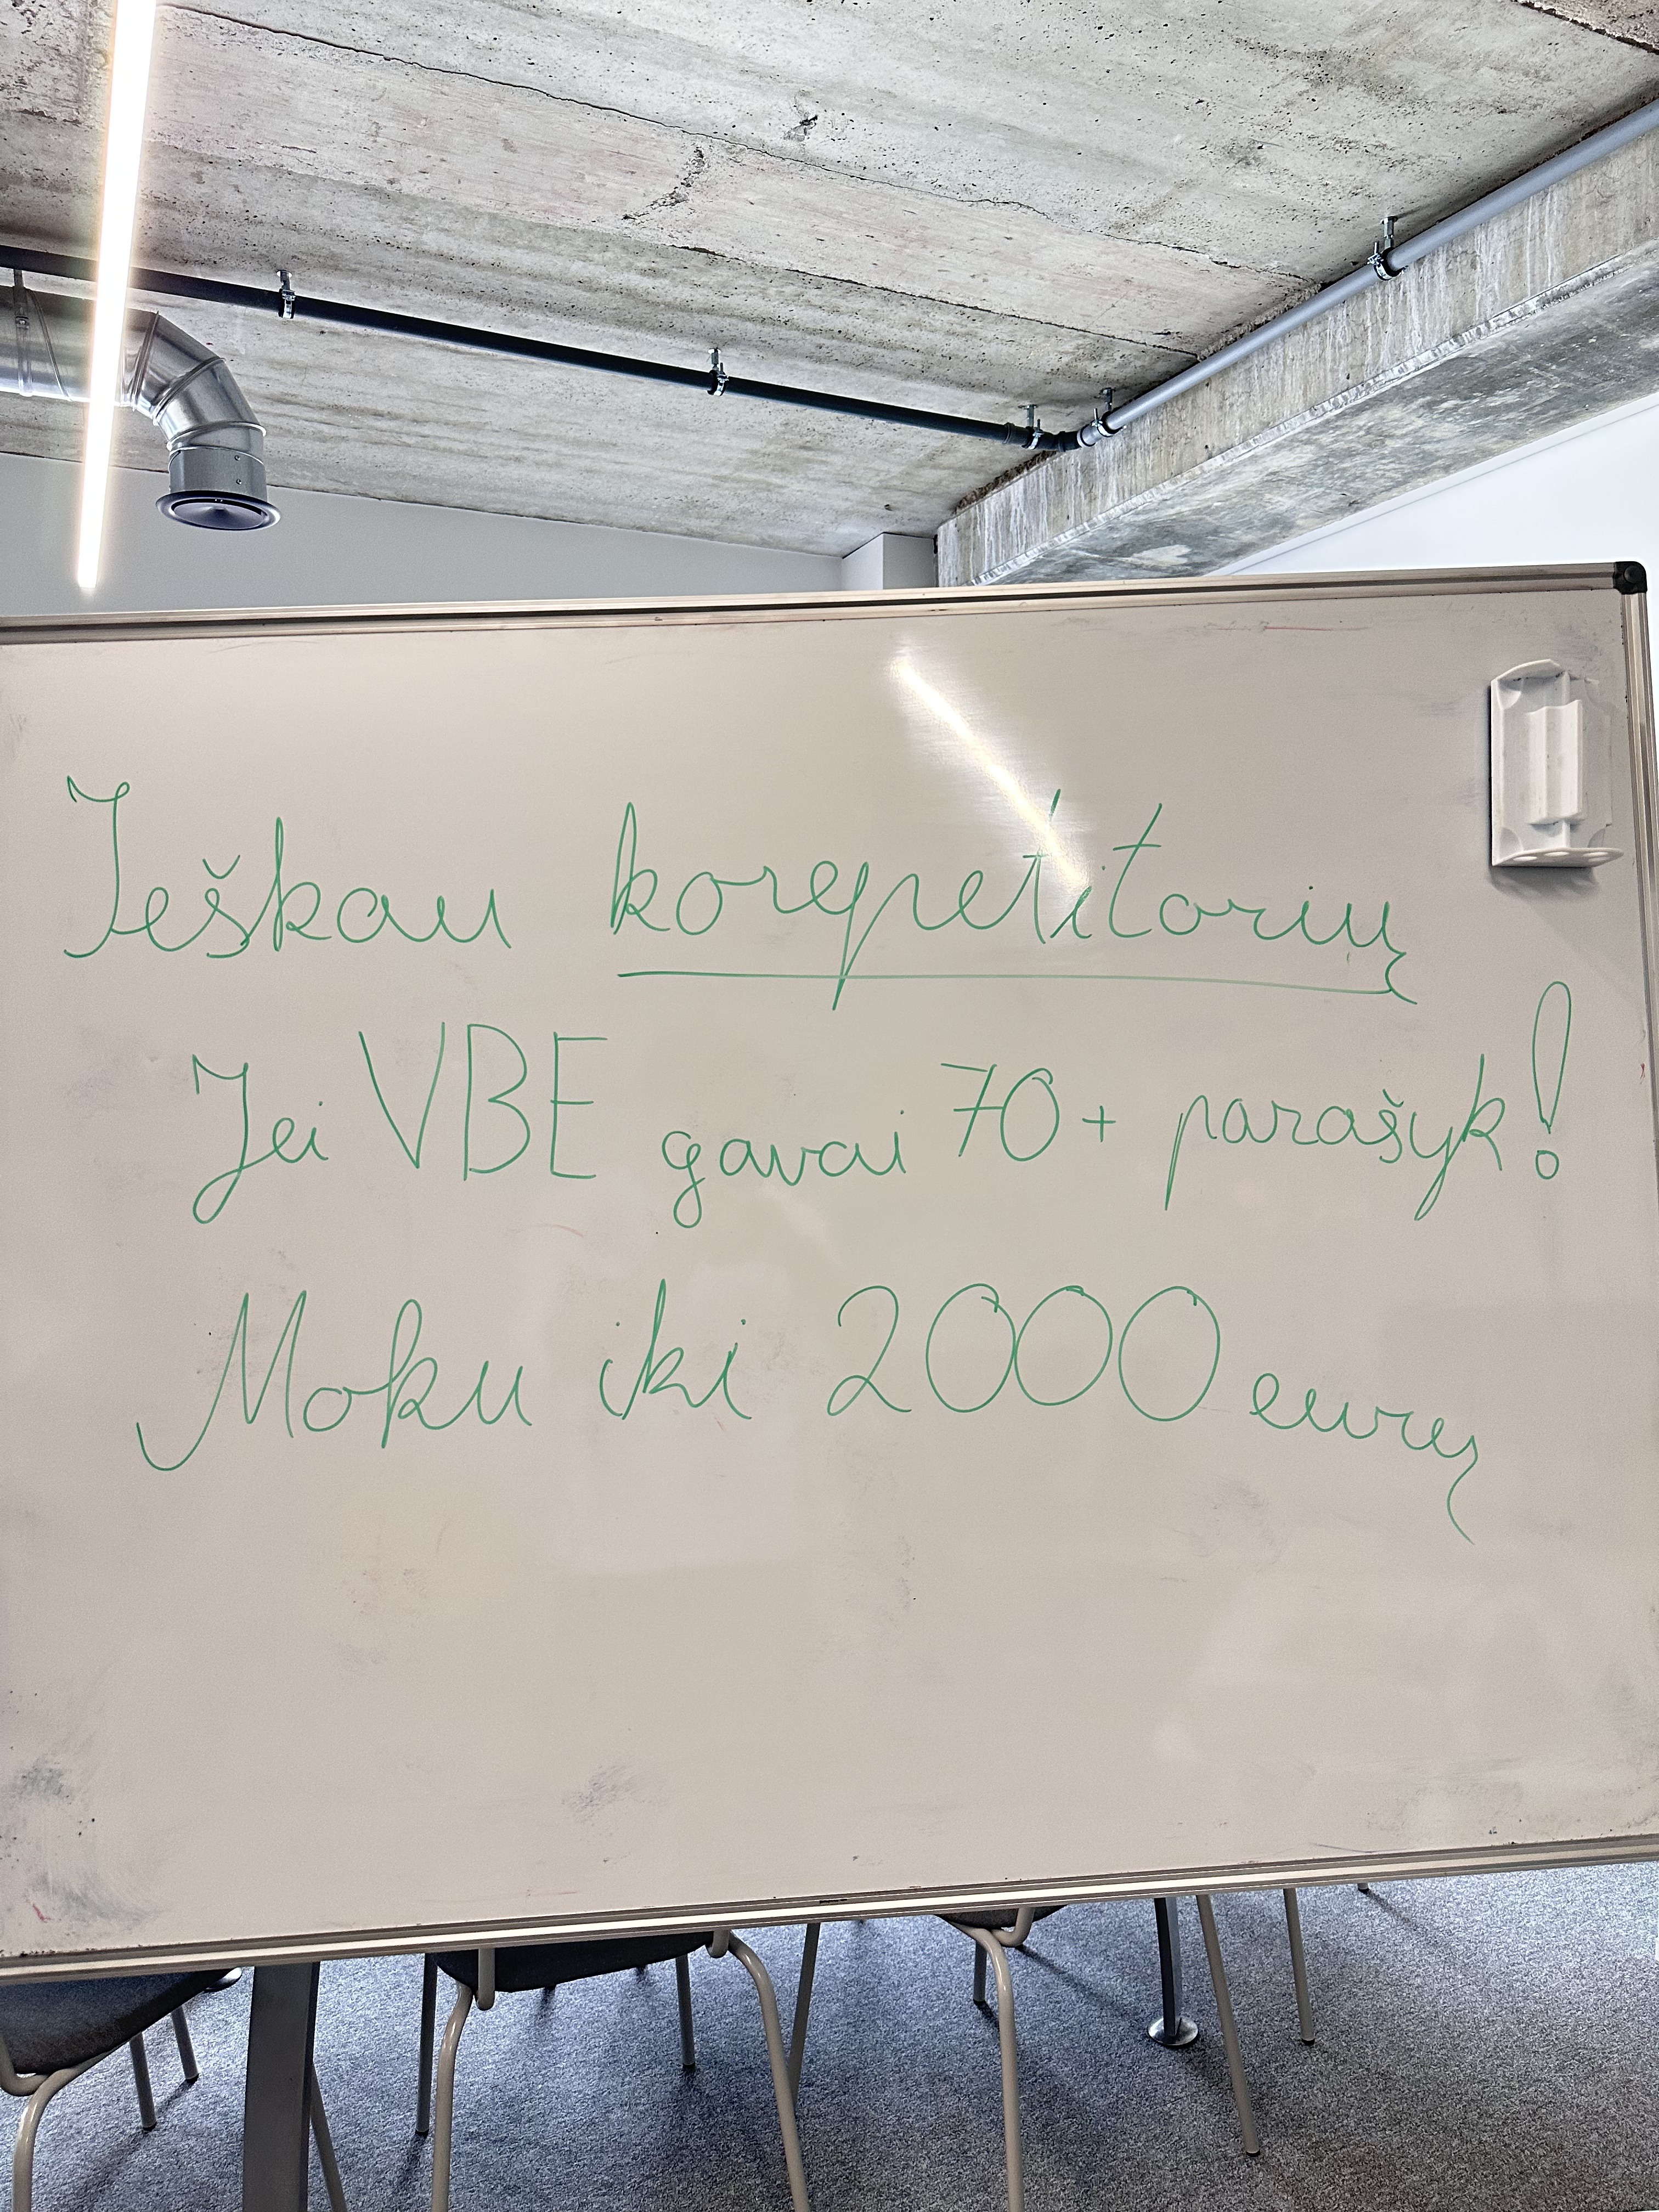 Ieškau korepetitorių
Jei VBE gavai 70+ parašyk!
Moku iki 2000 eurų